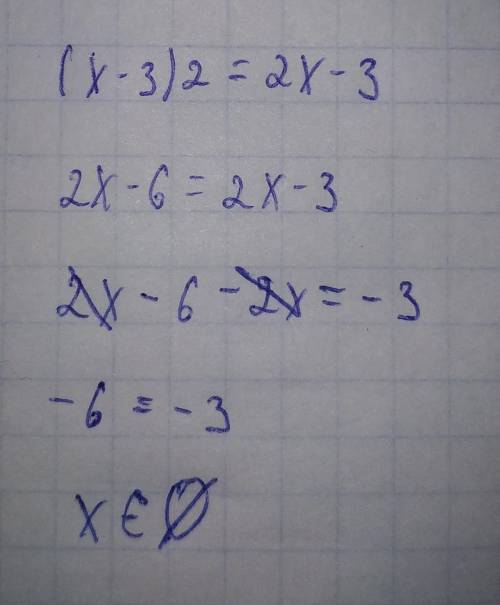 (x-3)2=2x-3
2x-6=2x-3
2x-6-2x=-3
-6=-3
x∈∅